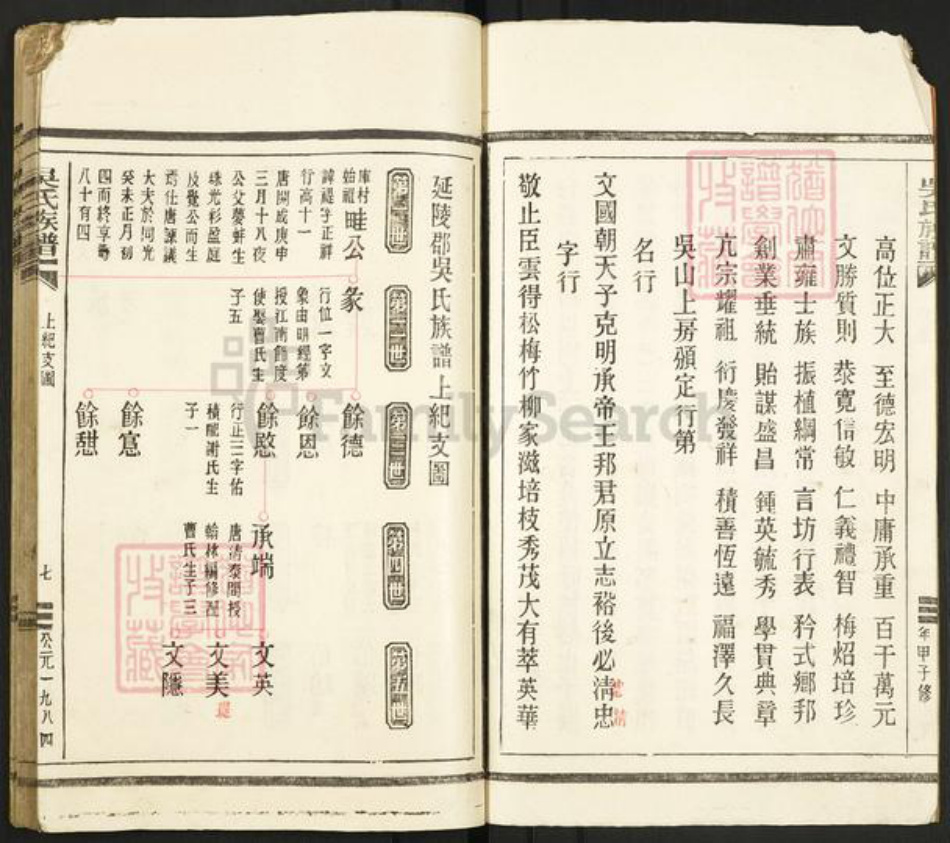 高位正大 至德宏明 中庸承重 百千萬元
文勝質則 恭寬信敏 仁義禮智 梅炤培珍
肅雍士族 振植綱常 言坊行表 矜式鄉邦
創業垂統 貽謀盛昌 鍾英毓秀 學貫典章
亢宗耀祖 衍慶發祥 積善恆遠 福澤久長
吳山上房頒定行第
名行
文國朝天子克明承帝王邦君原立志裕後必清忠
字行
敬止臣雲得松梅竹柳家滋培枝秀茂大有萃英華
延陵郡吳氏族譜上紀支圖
第一世
第二世
第三世
第四世
第五世
庫村始祖 畦公
諱禔字正祥
行高十一
唐開成庚申
三月十八夜
公父夢蚌生
珠光彩盈庭
及覺公而生
焉仕唐諫議
大夫於同光
癸未正月初
四而終享壽
八十有四
彖
行位一字文
象由明經第
授江南節度
使娶曹氏生
子五
餘德
餘恩
餘慜
行止三字佑
積配謝氏生
子一
餘意
餘甜
承端
唐清泰間授
翰林編修配
曹氏生子三
文英
文美
文隱
吳氏族譜
上紀支圖
七
公元一九八四
年甲子修
FamilySearch